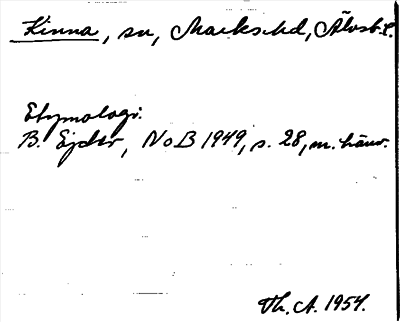 Kinna, sn, Marks hd, Älvsb. l.
Etymologi.
B. Ejder, NoB 1949, s. 28, m. hänv.
Th. A. 1954.